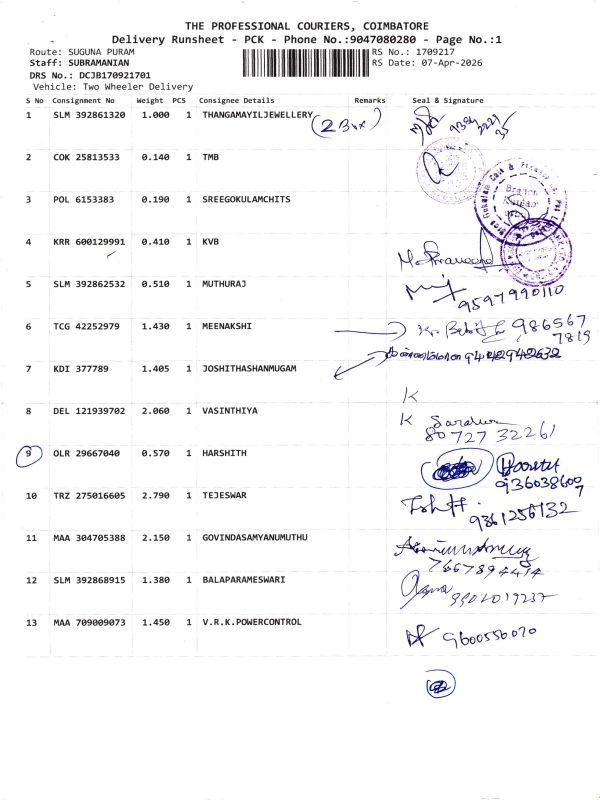 THE PROFESSIONAL COURIERS, COIMBATORE
Delivery Runsheet - PCK - Phone No.:9047080280 - Page No.:1
Route: SUGUNA PURAM
RS No.: 1709217
Staff: SUBRAMANIAN
RS Date: 07-Apr-2026
DRS No.: DCJB170921701
Vehicle: Two Wheeler Delivery
S No Consignment No Weight PCS Consignee Details Remarks Seal & Signature
1 SLM 392861320 1.000 1 THANGAMAYILJEWELLERY (2 Box)
2 COK 25813533 0.140 1 TMB
3 POL 6153383 0.190 1 SREEGOKULAMCHITS
4 KRR 600129991 0.410 1 KVB
5 SLM 392862532 0.510 1 MUTHURAJ
9597990110
6 TCG 42252979 1.430 1 MEENAKSHI 986567
7819
9442942632
7 KDI 377789 1.405 1 JOSHITHASHANMUGAM
K
8 DEL 121939702 2.060 1 VASINTHIYA K
80727 32261
9 OLR 29667040 0.570 1 HARSHITH
10 TRZ 275016605 2.790 1 TEJESWAR
9361256132
11 MAA 304705388 2.150 1 GOVINDASAMYANUMUTHU
7667894414
12 SLM 392868915 1.380 1 BALAPARAMESWARI
13 MAA 709009073 1.450 1 V.R.K.POWERCONTROL 9600556070